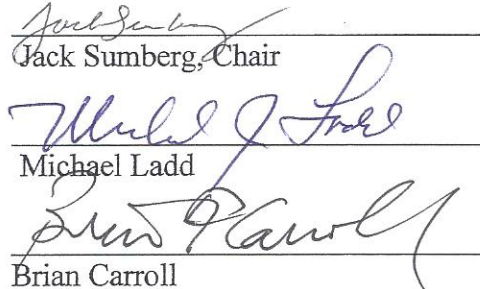 Jack Sumberg
Jack Sumberg, Chair
Michael J Ladd
Michael Ladd
Brian P Carroll
Brian Carroll